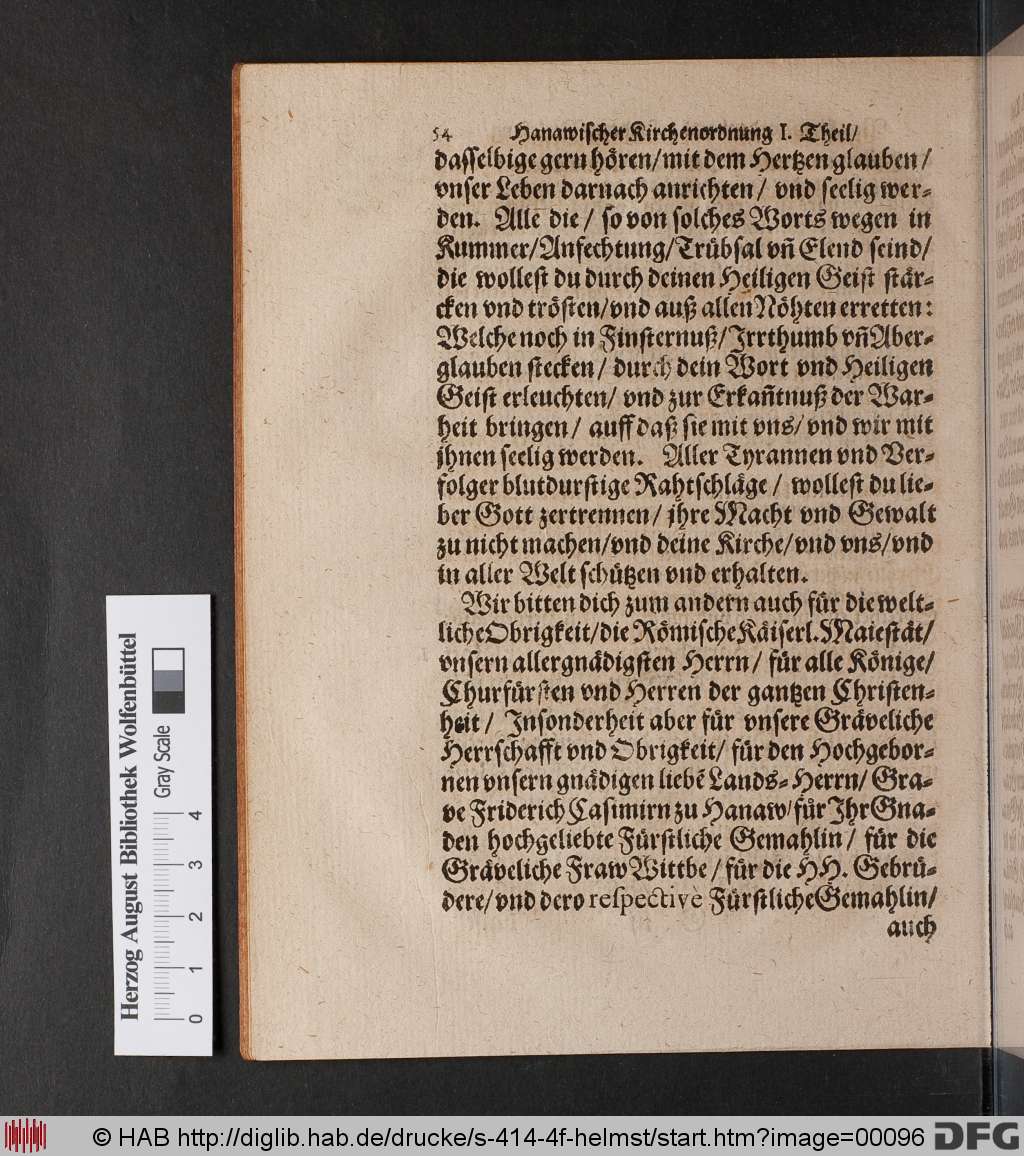 54 Hanawischer Kirchenordnung I. Theil/
dasselbige gern hören/ mit dem Hertzen glauben/
vnser Leben darnach anrichten/ vnd seelig wer-
den. Alle die/ so von solches Worts wegen in
Kummer/ Anfechtung/ Trübsal vñ Elend seind/
die wollest du durch deinen Heiligen Geist stär-
cken vnd trösten/ vnd auß allen Nöhten erretten:
Welche noch in Finsternuß/ Irrthumb vñ Aber-
glauben stecken/ durch dein Wort vnd Heiligen
Geist erleuchten/ vnd zur Erkañtnuß der War-
heit bringen/ auff daß sie mit vns/ vnd wir mit
jhnen seelig werden. Aller Tyrannen vnd Ver-
folger blutdurstige Rahtschläge/ wollest du lie-
ber Gott zertrennen/ jhre Macht vnd Gewalt
zu nicht machen/ vnd deine Kirche/ vnd vns/ vnd
in aller Welt schützen vnd erhalten.
Wir bitten dich zum andern auch für die welt-
liche Obrigkeit/ die Römische Käiserl. Maiestät/
vnsern allergnädigsten Herrn/ für alle Könige/
Churfürsten vnd Herren der gantzen Christen-
heit/ Insonderheit aber für vnsere Gräveliche
Herrschafft vnd Obrigkeit/ für den Hochgebor-
nen vnsern gnädigen liebẽ Lands-Herrn/ Gra-
ve Friderich Casimirn zu Hanaw/ für Ihr Gna-
den hochgeliebte Fürstliche Gemahlin/ für die
Gräveliche Fraw Wittbe/ für die HH. Gebrü-
dere/ vnd dero respectivè Fürstliche Gemahlin/
auch
Herzog August Bibliothek Wolfenbüttel
Gray Scale
0 1 2 3 4
© HAB http://diglib.hab.de/drucke/s-414-4f-helmst/start.htm?image=00096 DFG